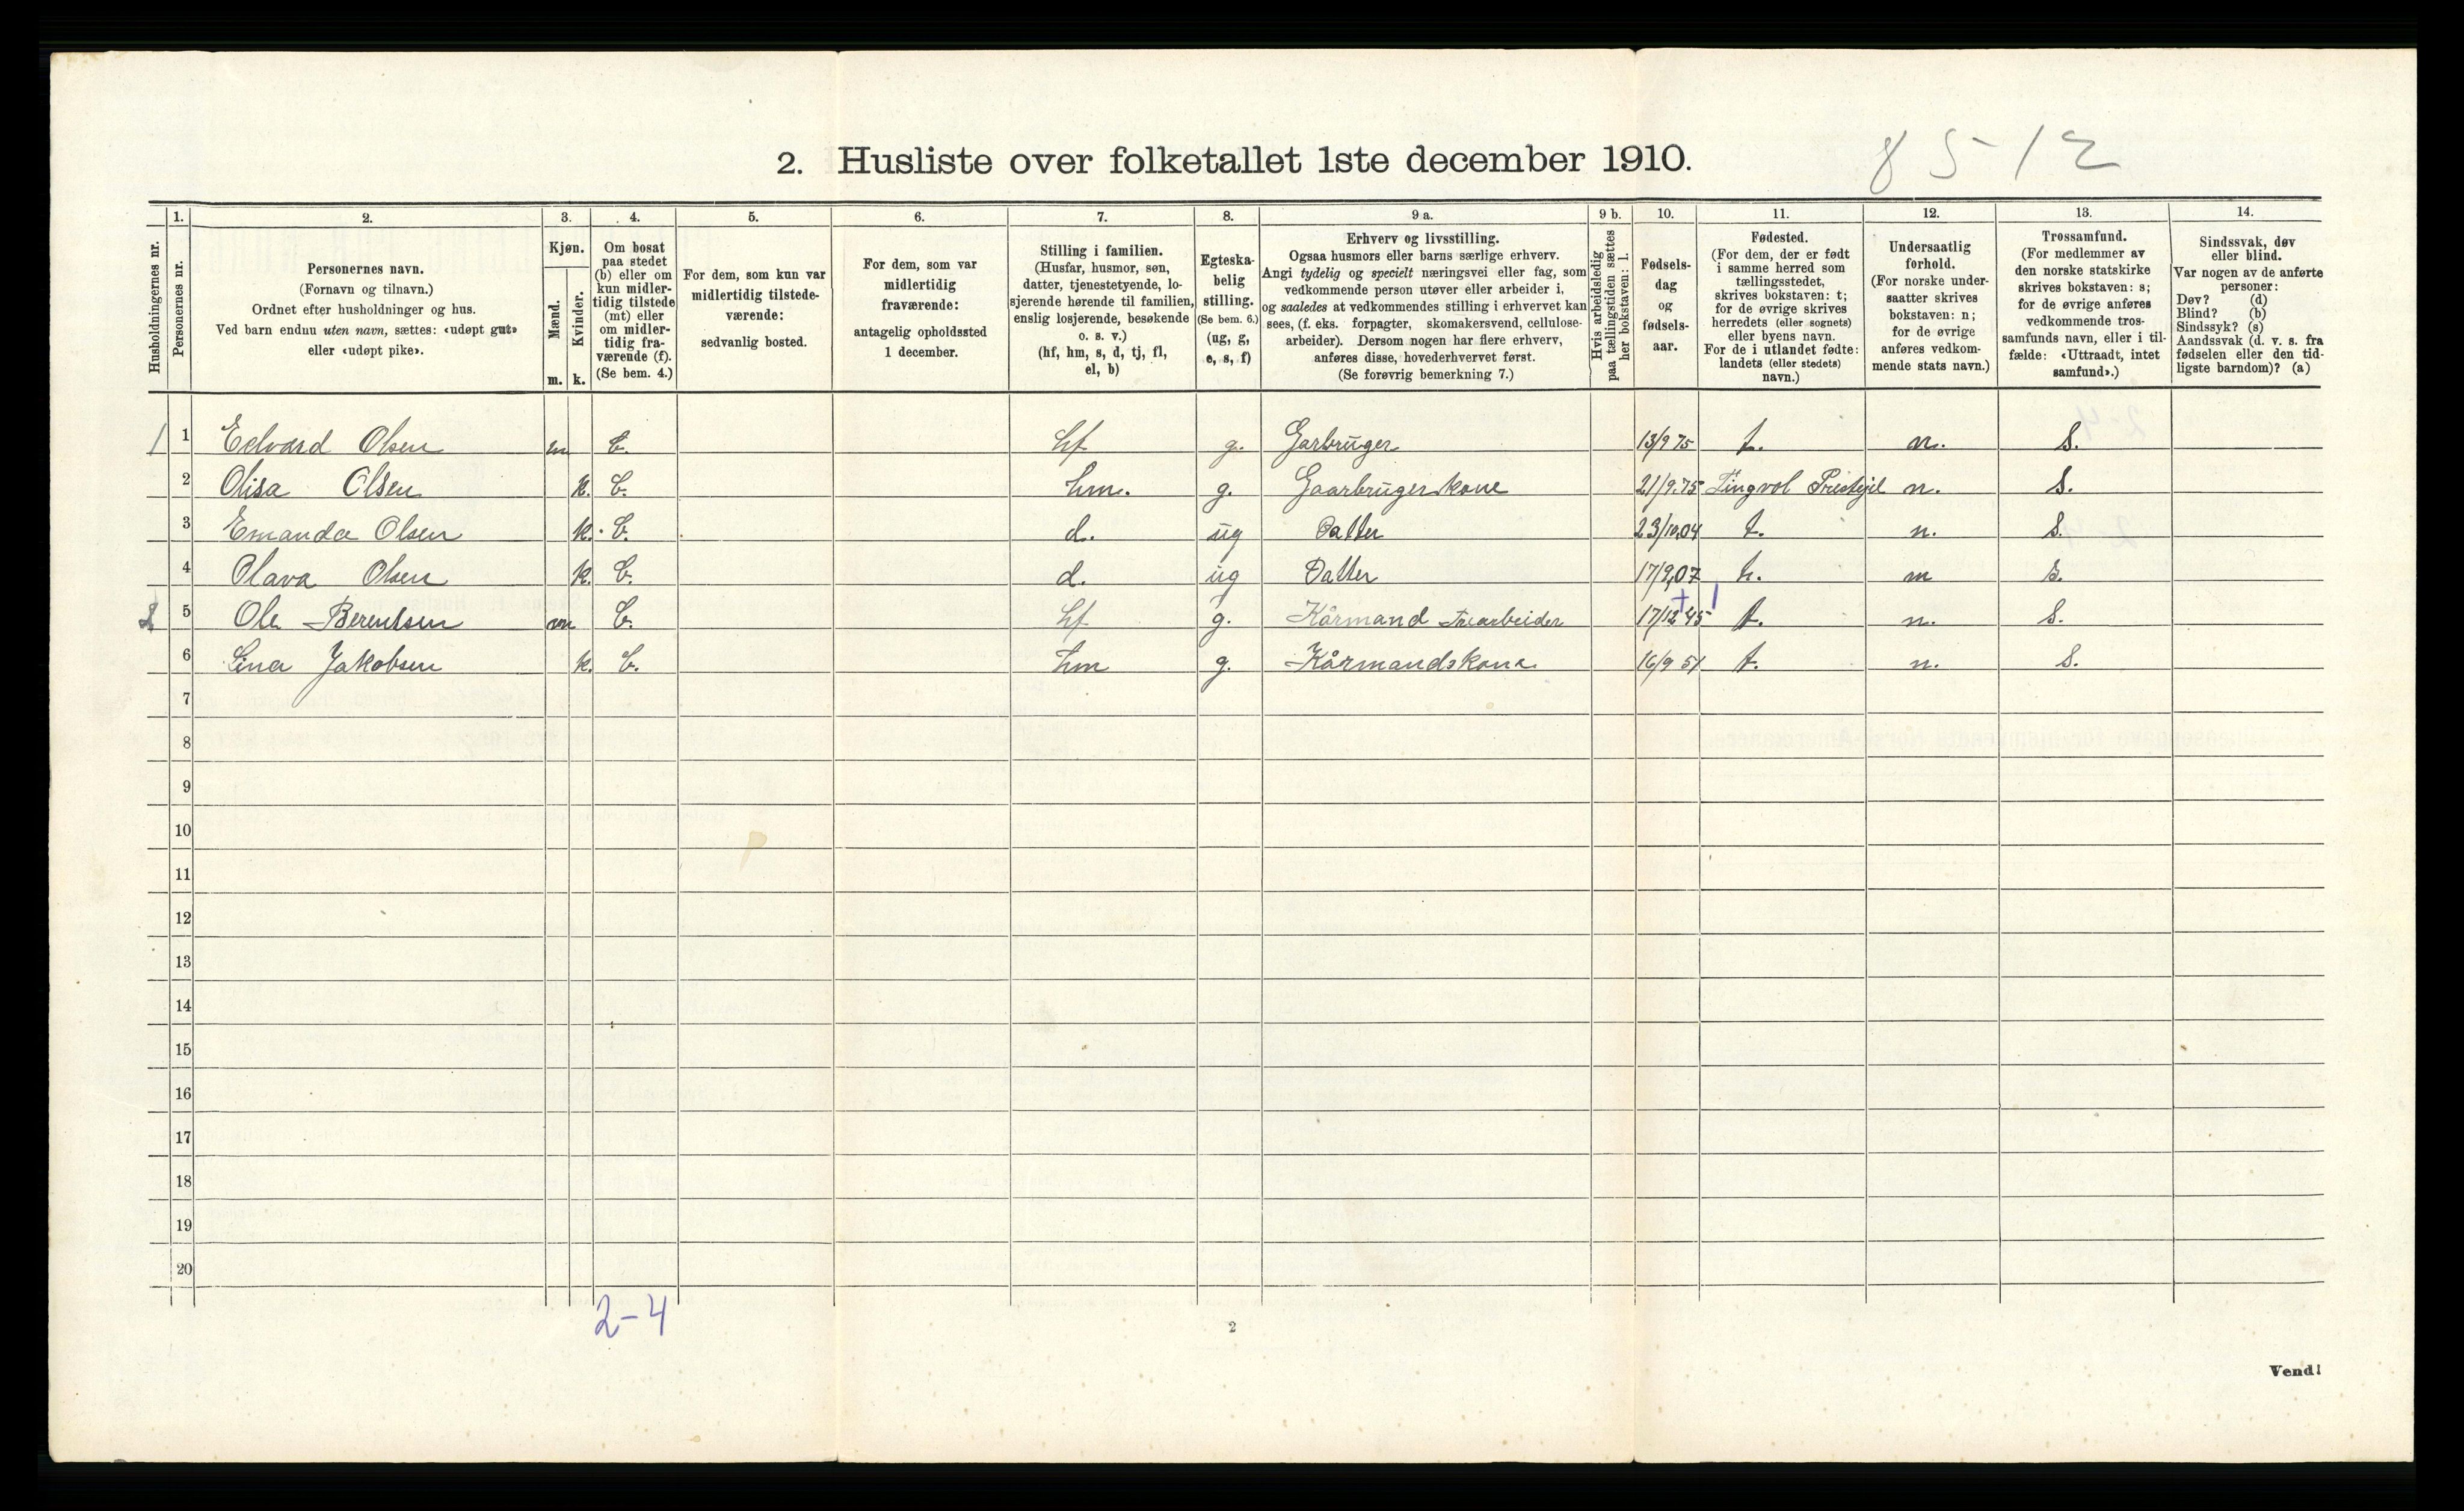 2. Husliste over folketallet 1ste december 1910.
85-12
Husholdningernes nr.
1. Personernes nr.
2. Personernes navn.
(Fornavn og tilnavn.)
Ordnet efter husholdninger og hus.
Ved barn endnu uten navn, sættes: «udøpt gut»
eller «udøpt pike».
3. Kjøn.
Mænd. m.
Kvinder. k.
4. Om bosat
paa stedet
(b) eller om
kun midler-
tidig tilstede
(mt) eller
om midler-
tidig fra-
værende (f).
(Se bem. 4.)
5. For dem, som kun var
midlertidig tilstede-
værende:
sedvanlig bosted.
6. For dem, som var
midlertidig
fraværende:
antagelig opholdssted
1 december.
7. Stilling i familien.
(Husfar, husmor, søn,
datter, tjenestetyende, lo-
sjerende hørende til familien,
enslig losjerende, besøkende
o. s. v.)
(hf, hm, s, d, tj, fl,
el, b)
8. Egteska-
belig
stilling.
(Se bem. 6.)
(ug, g,
e, s, f)
9 a. Erhverv og livsstilling.
Ogsaa husmors eller barns særlige erhverv.
Angi tydelig og specielt næringsvei eller fag, som
vedkommende person utøver eller arbeider i,
og saaledes at vedkommendes stilling i erhvervet kan
sees, (f. eks. forpagter, skomakersvend, cellulose-
arbeider). Dersom nogen har flere erhverv,
anføres disse, hovederhvervet først.
(Se forøvrig bemerkning 7.)
9 b. Hvis arbeidsledig
paa tællingstiden sættes
her bokstaven: l.
10. Fødsels-
dag
og
fødsels-
aar.
11. Fødested.
(For dem, der er født
i samme herred som
tællingsstedet,
skrives bokstaven: t;
for de øvrige skrives
herredets (eller sognets)
eller byens navn.
For de i utlandet fødte:
landets (eller stedets)
navn.)
12. Undersaatlig
forhold.
(For norske under-
saatter skrives
bokstaven: n;
for de øvrige
anføres vedkom-
mende stats navn.)
13. Trossamfund.
(For medlemmer av
den norske statskirke
skrives bokstaven: s;
for de øvrige anføres
vedkommende tros-
samfunds navn, eller i til-
fælde: «Uttraadt, intet
samfund».)
14. Sindssvak, døv
eller blind.
Var nogen av de anførte
personer:
Døv? (d)
Blind? (b)
Sindssyk? (s)
Aandssvak (d. v. s. fra
fødselen eller den tid-
ligste barndom)? (a)
1 1 Edvard Olsen m b. hf g. Garbruger 13/9 75 t. n. S.
2 Olisa Olsen k. b. hm. g. Gaarbrugerskone 21/9.75 Tingvol Prestejel n. S.
3 Emanda Olsen k. b. d. ug Datter 23/10.04 t. n. S.
4 Olava Olsen k. b. d. ug Datter 17/9.07 t. n S.
2 5 Ole Berentsen m b. hf g. Kårmand Træarbeider 17/12 45 t. n. S.
6 Lina Jakobsen k. b. hm g. Kårmandskone 16/9 51 t. n. S.
7
8
9
10
11
12
13
14
15
16
17
18
19
20
2-4
2
Vend!